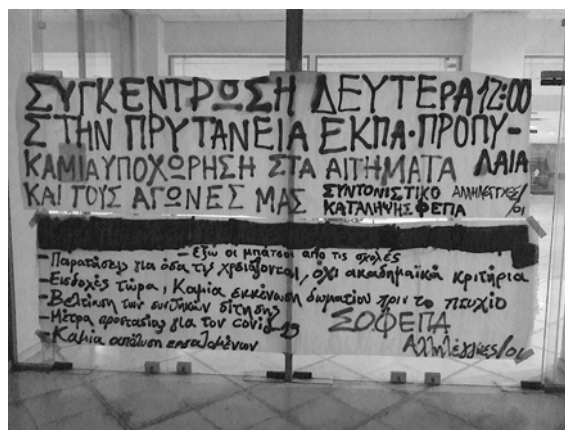 ΣΥΓΚΕΝΤΡΩΣΗ ΔΕΥΤΕΡΑ 12:00
ΣΤΗΝ ΠΡΥΤΑΝΕΙΑ ΕΚΠΑ·ΠΡΟΠΥ-
ΛΑΙΑ
ΚΑΜΙΑ ΥΠΟΧΩΡΗΣΗ ΣΤΑ ΑΙΤΗΜΑΤΑ
ΚΑΙ ΤΟΥΣ ΑΓΩΝΕΣ ΜΑΣ
ΣΥΝΤΟΝΙΣΤΙΚΟ
ΚΑΤΑΛΗΨΗΣ ΦΕΠΑ
ΑΛΛΗΛΕΓΓΥΕΣ/
οι
- Έξω οι μπάτσοι από τις σχολές
- Παρατάσεις για όσα τις χρειάζονται, όχι ακαδημαϊκά κριτήρια
- Εισδοχές τώρα, Καμία εκκένωση δωματίου πριν το πτυχίο
- Βελτίωση των συνθηκών σίτησης
- Μέτρα προστασίας για τον covid-19
- Καμία απόλυση εργαζομένων
ΣΟΦΕΠΑ
Αλληλέγγυες/οι